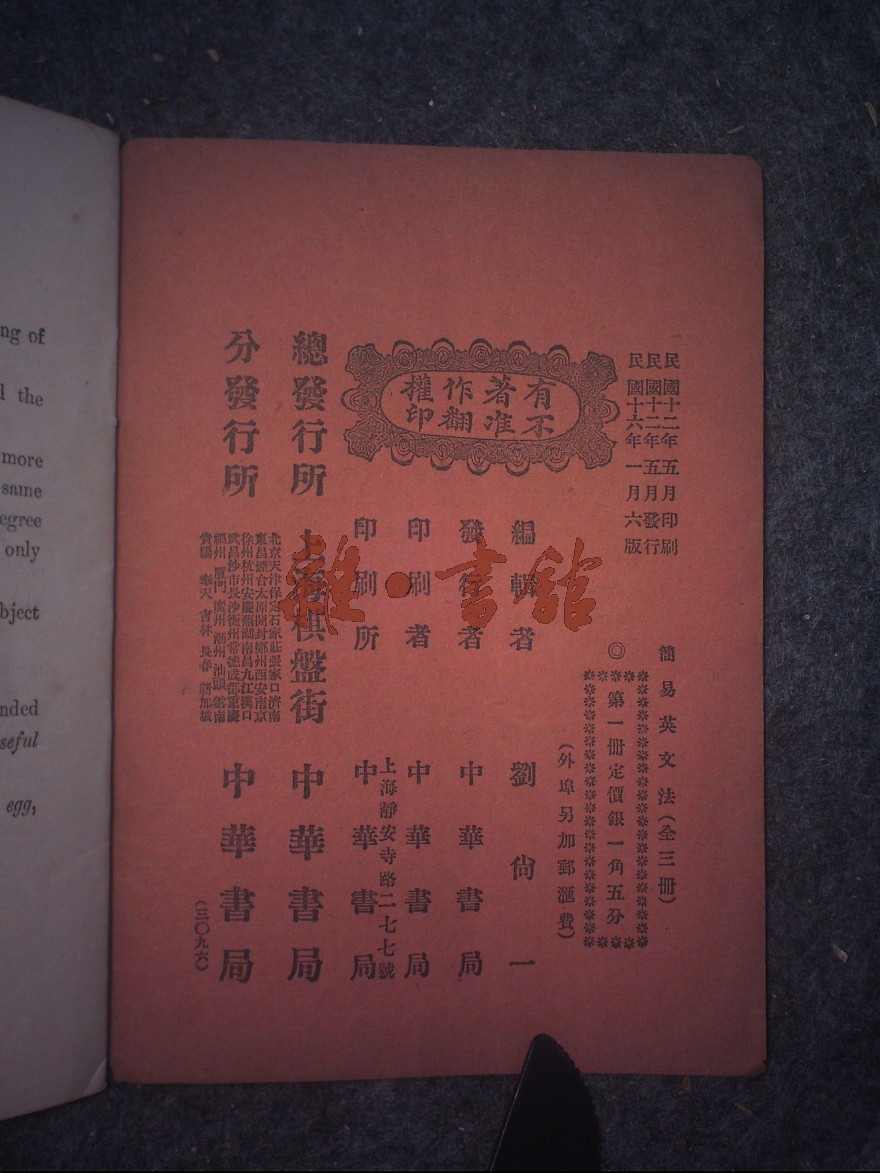 民國十二年五月印刷
民國十二年五月發行
民國十六年一月六版
簡易英文法(全三冊)
◎第一冊定價銀一角五分
(外埠另加郵匯費)
有著作權
不准翻印
編輯者 劉尙一
發行者 中華書局
印刷者 中華書局
上海靜安寺路二七七號
印刷所 中華書局
總發行所 上海棋盤街 中華書局
分發行所 中華書局
北京天津保定石家莊張家口濟南
東昌煙台太原開封鄭州西安南京
徐州杭州安慶蕪湖南昌九江漢口
武昌沙市長沙衡州常德成都重慶
福州廈門廣州潮州汕頭雲南
貴陽奉天吉林長春新加坡
(三〇九六)
雜·書館
ng of
the
more
same
egree
only
bject
nded
seful
egg,